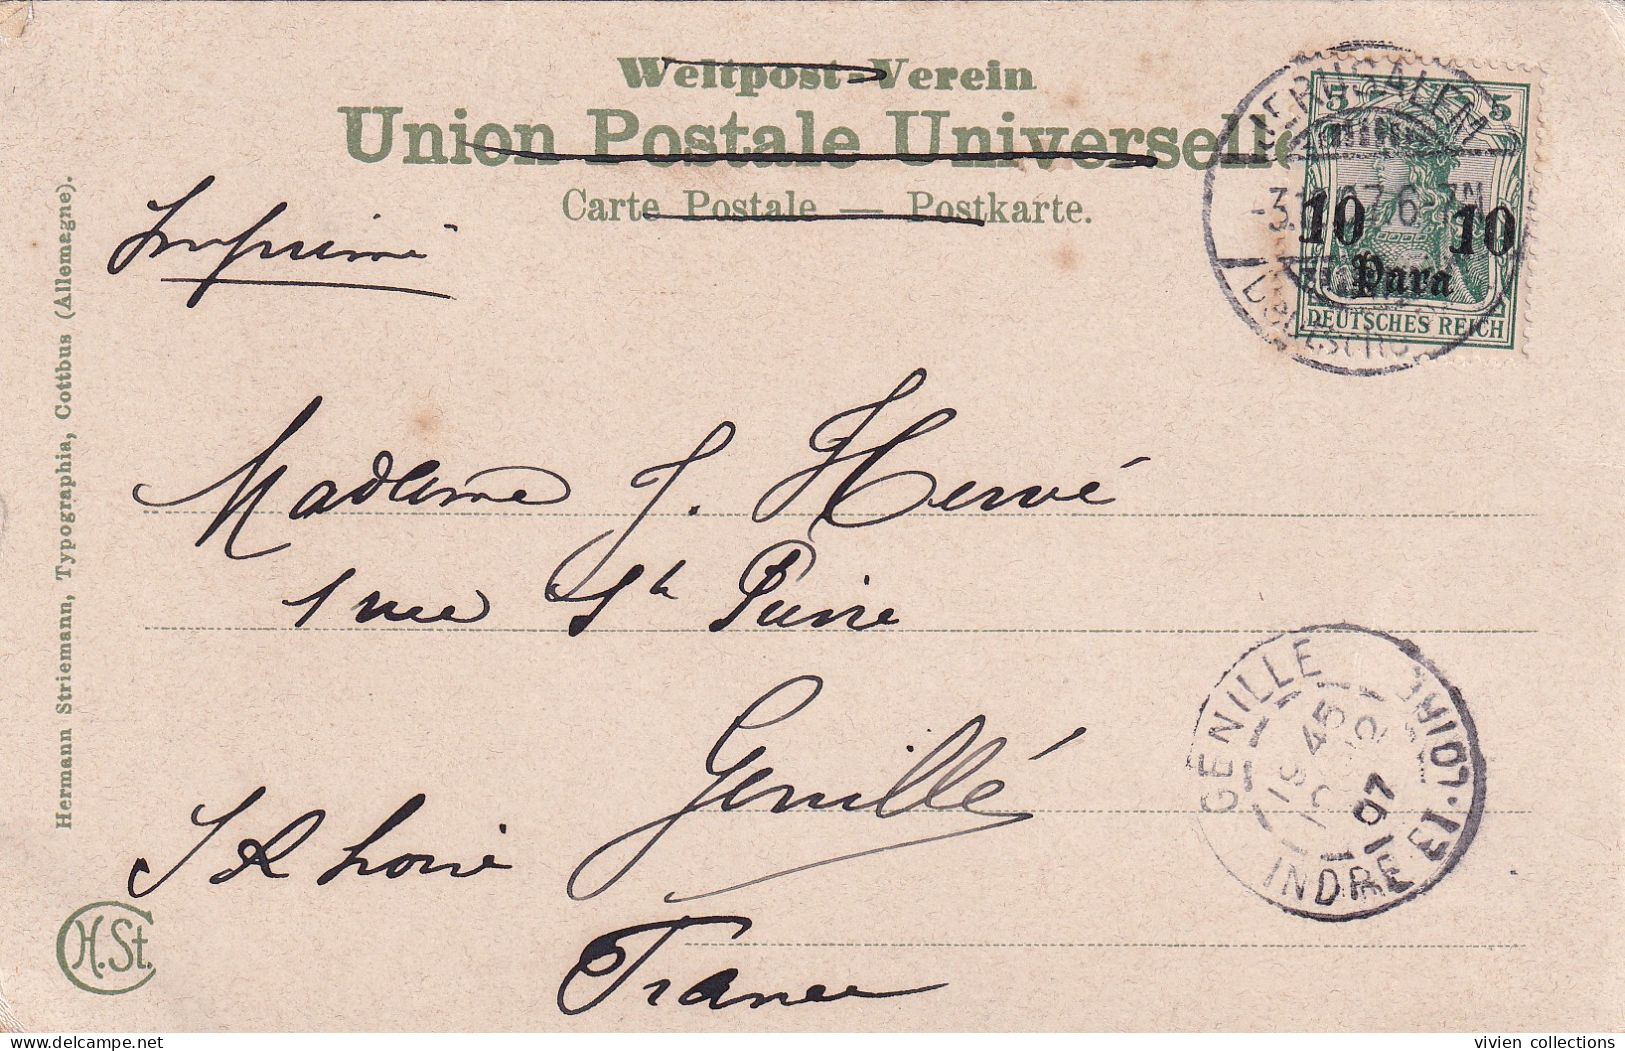 Weltpost-Verein
Union Postale Universelle
Carte Postale — Postkarte.
JERUSALEM
5 5
10 10
Para
DEUTSCHES REICH
Imprimé
Hermann Striemann, Typographia, Cottbus (Allemagne).
Madame J. Hervé
1 rue St Pierre
Genillé
I & Loire
France
GENILLE
19 45
07
INDRE-ET-LOIRE
H.St.
vivien collections